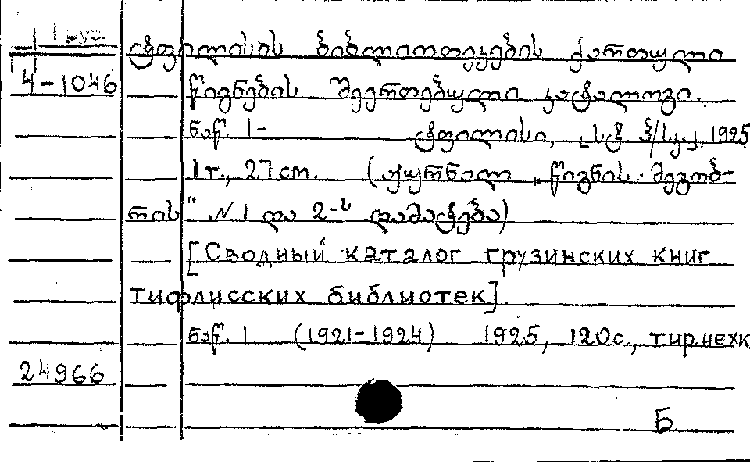 I груз
4-1046
ტფილისის ბიბლიოთეკების ქართული
წიგნების შეერთებული კატალოგი.
ნაწ. 1- ტფილისი, 1925
1 т., 27 cm. (ჟურნალი „წიგნის მეგობ-
რის" №1 და 2-ს დამატება)
[Сводный каталог грузинских книг
тифлисских библиотек].
ნაწ. 1 (1921-1924) 1925, 120 с.,
24966
Б